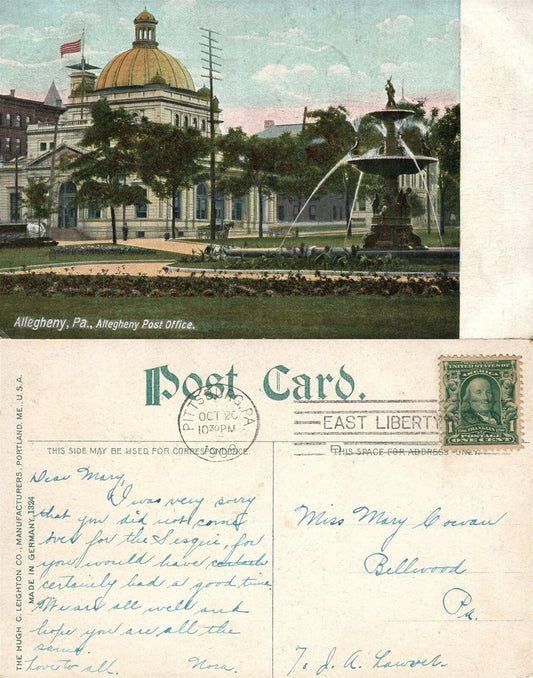 Allegheny, Pa., Allegheny Post Office.
Post Card.
PITTSBURG, PA.
OCT 20
1030 PM
1908
EAST LIBERTY
UNITED STATES OF AMERICA
FRANKLIN
POSTAGE
1 ONE CENT 1
THIS SIDE MAY BE USED FOR CORRESPONDENCE.
THIS SPACE FOR ADDRESS ONLY.
THE HUGH C. LEIGHTON CO., MANUFACTURERS, PORTLAND, ME. U.S.A.
MADE IN GERMANY. 1324
Dear Mary,
I was very sorry
that you did not come
over for the Sesqui, for
you would have
certainly had a good time.
We are all well and
hope you are all the
same.
Love to all. Nora.
Miss Mary Cowan
Bellwood
Pa.
% J. A.